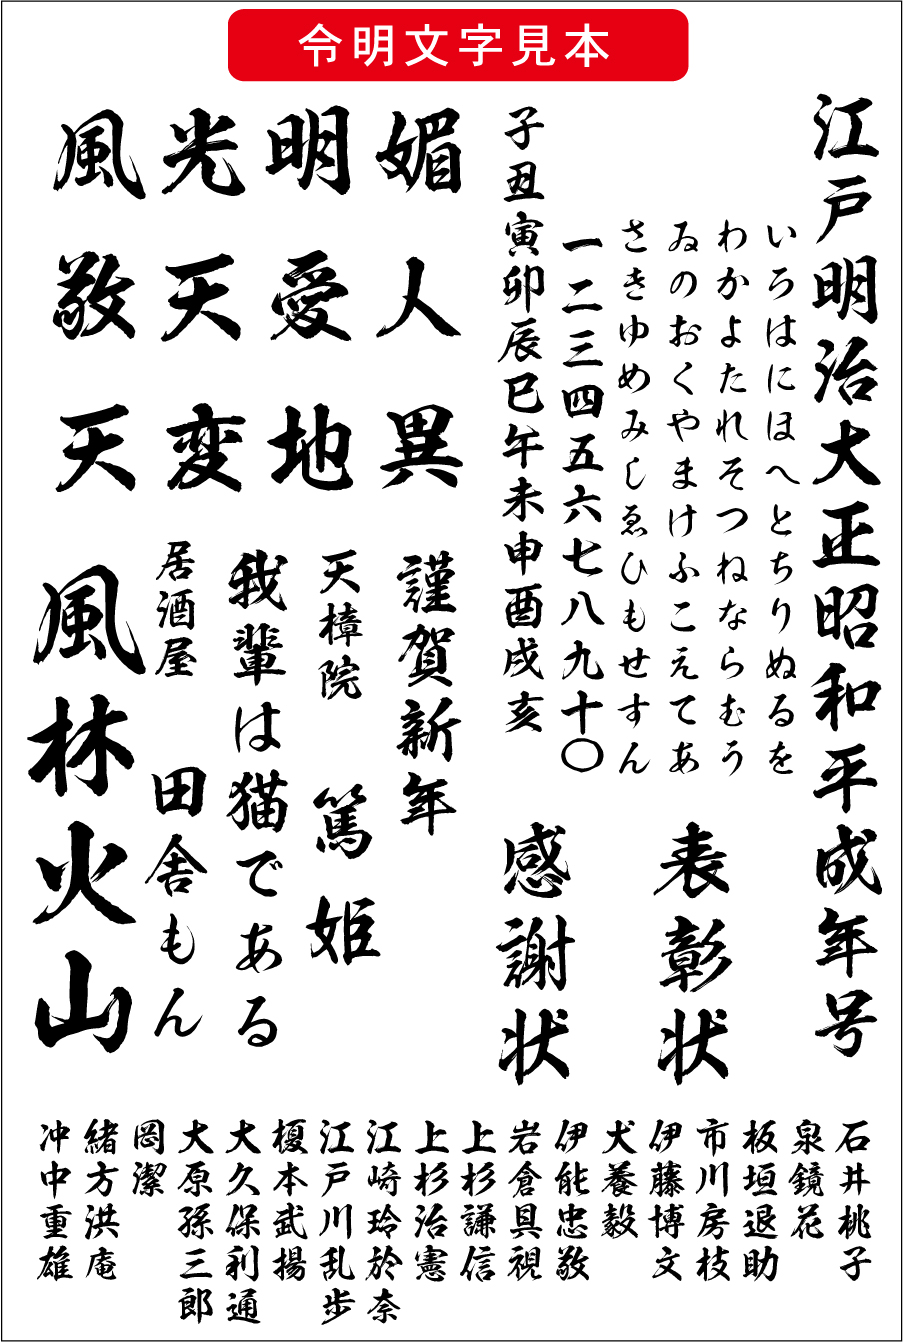 令明文字見本
江戸明治大正昭和平成年号
いろはにほへとちりぬるを
わかよたれそつねならむう
ゐのおくやまけふこえてあ
さきゆめみしゑひもせすん
一二三四五六七八九十〇
子丑寅卯辰巳午未申酉戌亥
表彰状
感謝状
媚人異
明愛地
光天変
風敬天
謹賀新年
天樟院 篤姫
我輩は猫である
居酒屋 田舎もん
風林火山
石井桃子
泉鏡花
板垣退助
市川房枝
伊藤博文
犬養毅
伊能忠敬
岩倉具視
上杉謙信
上杉治憲
江崎玲於奈
江戸川乱歩
榎本武揚
大久保利通
大原孫三郎
岡潔
緒方洪庵
冲中重雄